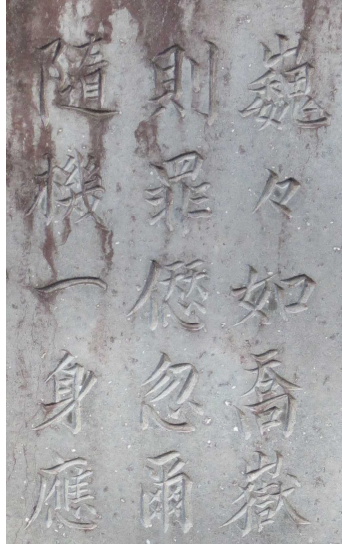 巍々如喬嶽
則罪僽忽爾
隨機一身應